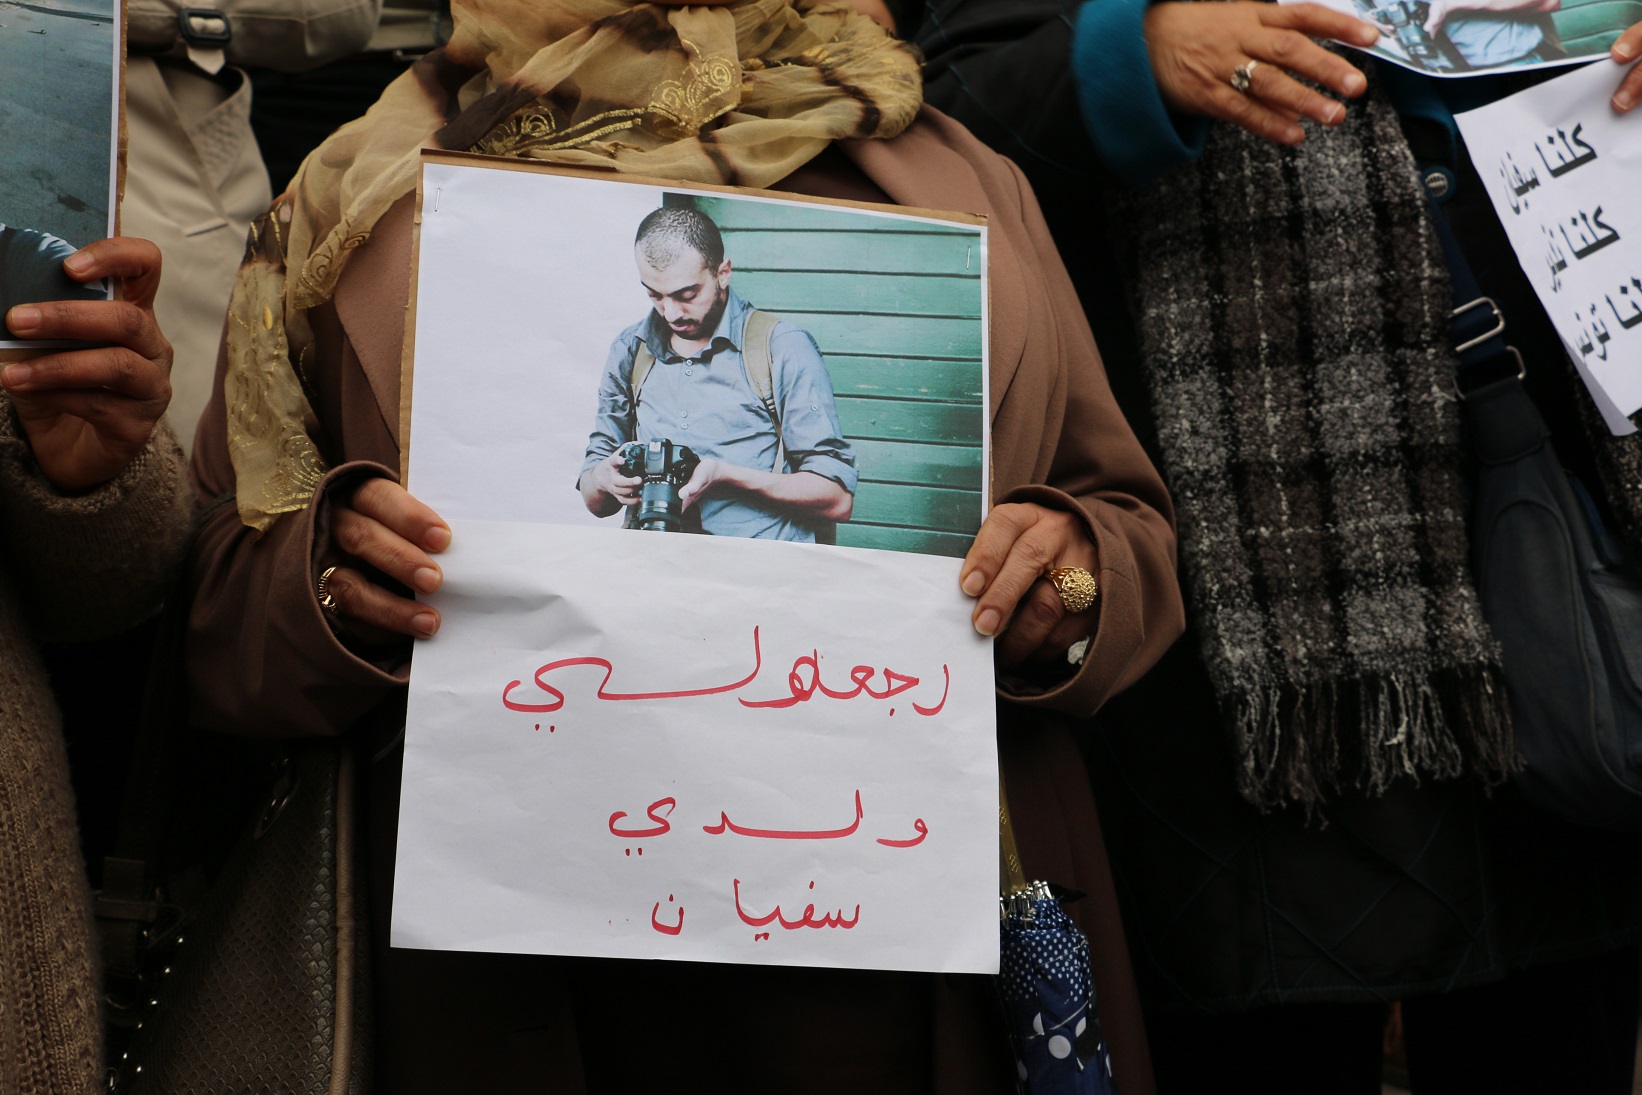 رجعولي
ولدي
سفيان
كلنا سفيان
كلنا نذير
كلنا تونس